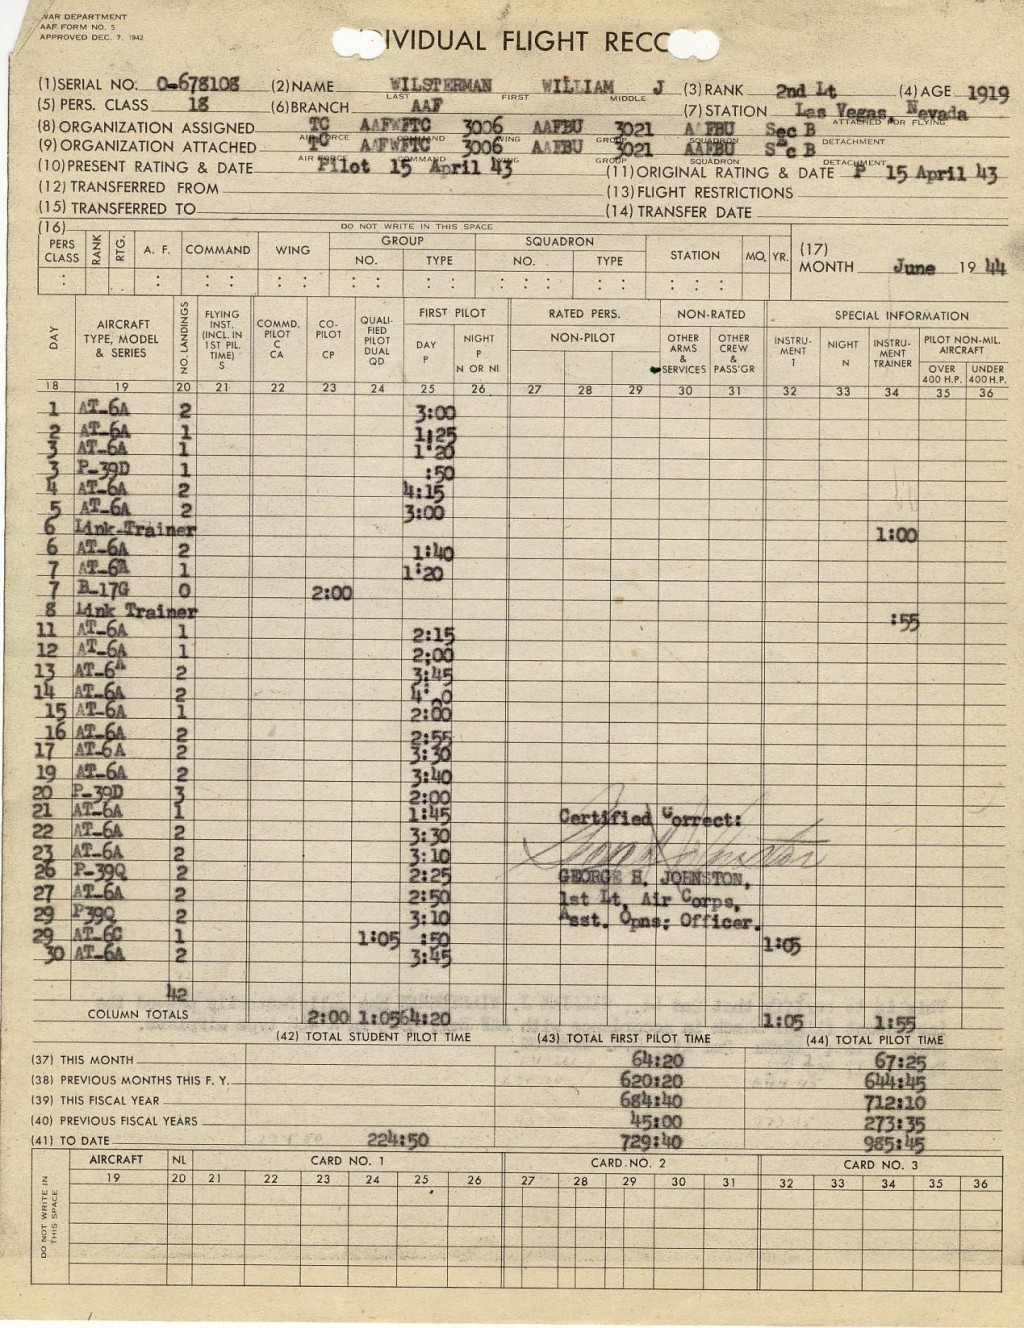 WAR DEPARTMENT
AAF FORM NO. 5
APPROVED DEC. 7, 1942
IVIDUAL FLIGHT RECO
(1) SERIAL NO. O-678108 (2) NAME WILSTERMAN WILLIAM J (3) RANK 2nd Lt (4) AGE 1919
LAST FIRST MIDDLE
(5) PERS. CLASS 18 (6) BRANCH AAF (7) STATION Las Vegas, Nevada
(8) ORGANIZATION ASSIGNED TC AAFWFTC 3006 AAFBU 3021 AAFBU Sec B ATTACHED FOR FLYING
AIR FORCE COMMAND WING GROUP SQUADRON DETACHMENT
(9) ORGANIZATION ATTACHED TC AAFWFTC 3006 AAFBU 3021 AAFBU Sec B
AIR FORCE COMMAND WING GROUP SQUADRON DETACHMENT
(10) PRESENT RATING & DATE Pilot 15 April 43 (11) ORIGINAL RATING & DATE P 15 April 43
(12) TRANSFERRED FROM (13) FLIGHT RESTRICTIONS
(15) TRANSFERRED TO (14) TRANSFER DATE
(16) DO NOT WRITE IN THIS SPACE
PERS CLASS RANK RTG. A. F. COMMAND WING GROUP NO. TYPE SQUADRON NO. TYPE STATION MO. YR. (17) MONTH June 19 44
DAY AIRCRAFT TYPE, MODEL & SERIES NO. LANDINGS FLYING INST. (INCL. IN 1ST PIL. TIME) S COMMD. PILOT C CA CO-PILOT CP QUALIFIED PILOT DUAL QD FIRST PILOT DAY P NIGHT P N OR NI RATED PERS. NON-PILOT NON-RATED OTHER ARMS & SERVICES OTHER CREW & PASS'GR SPECIAL INFORMATION INSTRUMENT I NIGHT N INSTRUMENT TRAINER PILOT NON-MIL. AIRCRAFT OVER 400 H.P. UNDER 400 H.P.
18 19 20 21 22 23 24 25 26 27 28 29 30 31 32 33 34 35 36
1 AT-6A 2 3:00
2 AT-6A 1 1:25
3 AT-6A 1 1:20
3 P-39D 1 :50
4 AT-6A 2 4:15
5 AT-6A 2 3:00
6 Link-Trainer 1:00
6 AT-6A 2 1:40
7 AT-6A 1 1:20
7 B-17G 0 2:00
8 Link Trainer :55
11 AT-6A 1 2:15
12 AT-6A 1 2:00
13 AT-6A 2 3:45
14 AT-6A 2
15 AT-6A 1 2:00
16 AT-6A 2 2:55
17 AT-6A 2 3:30
19 AT-6A 2 3:40
20 P-39D 3 2:00
21 AT-6A 1 1:45 Certified Correct:
22 AT-6A 2 3:30
23 AT-6A 2 3:10
26 P-39Q 2 2:25 GEORGE H. JOHNSTON,
27 AT-6A 2 2:50 1st Lt, Air Corps,
29 P39Q 2 3:10 Asst. Opns; Officer.
29 AT-6C 1 1:05 :50 1:05
30 AT-6A 2 3:45
42
COLUMN TOTALS 2:00 1:05 64:20 1:05 1:55
(42) TOTAL STUDENT PILOT TIME (43) TOTAL FIRST PILOT TIME (44) TOTAL PILOT TIME
(37) THIS MONTH 64:20 67:25
(38) PREVIOUS MONTHS THIS F. Y. 620:20 644:45
(39) THIS FISCAL YEAR 684:40 712:10
(40) PREVIOUS FISCAL YEARS 45:00 273:35
(41) TO DATE 224:50 729:40 985:45
DO NOT WRITE IN THIS SPACE AIRCRAFT NL CARD NO. 1 CARD NO. 2 CARD NO. 3
19 20 21 22 23 24 25 26 27 28 29 30 31 32 33 34 35 36